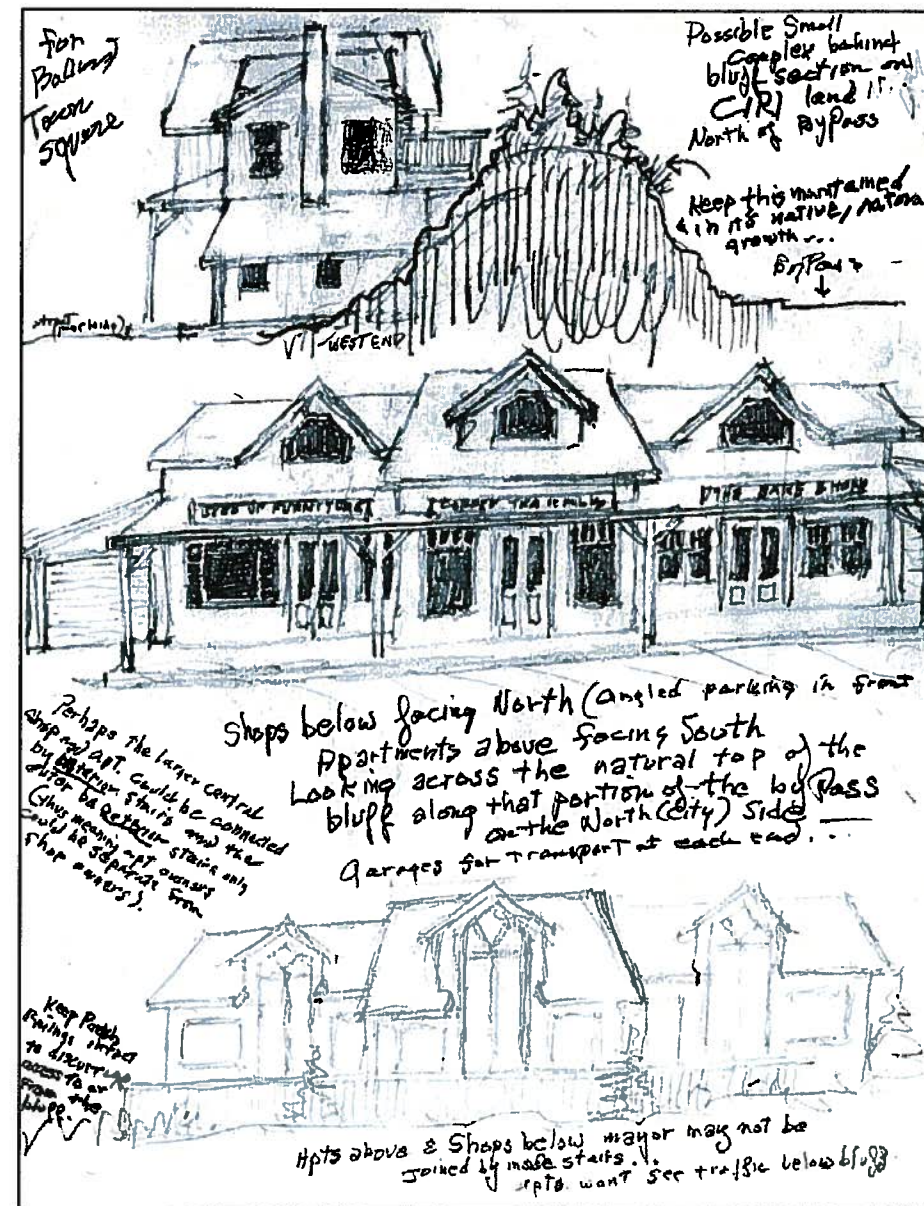 for
Town
Square
Possible Small
Complex behind
bluff section on
CIRI land
North of ByPass
Keep this maintained
in its native, natural
growth...
ByPass
WEST END
FURNITURE
Shops below facing North (angled parking in front
Apartments above facing South
Looking across the natural top of the
bluff along that portion of the by Pass
on the North (city) side
Garages for transport at each end...
Perhaps the larger central
shop and apt. could be connected
by stairs and the
be exterior stairs only
(thus meaning apt owners
could be separate from
shop owners).
Keep Porch
Railings intact
to discourage
access to or
from the
bluff.
Apts above & Shops below may or may not be
joined by inside stairs...
apts. won't see traffic below bluff